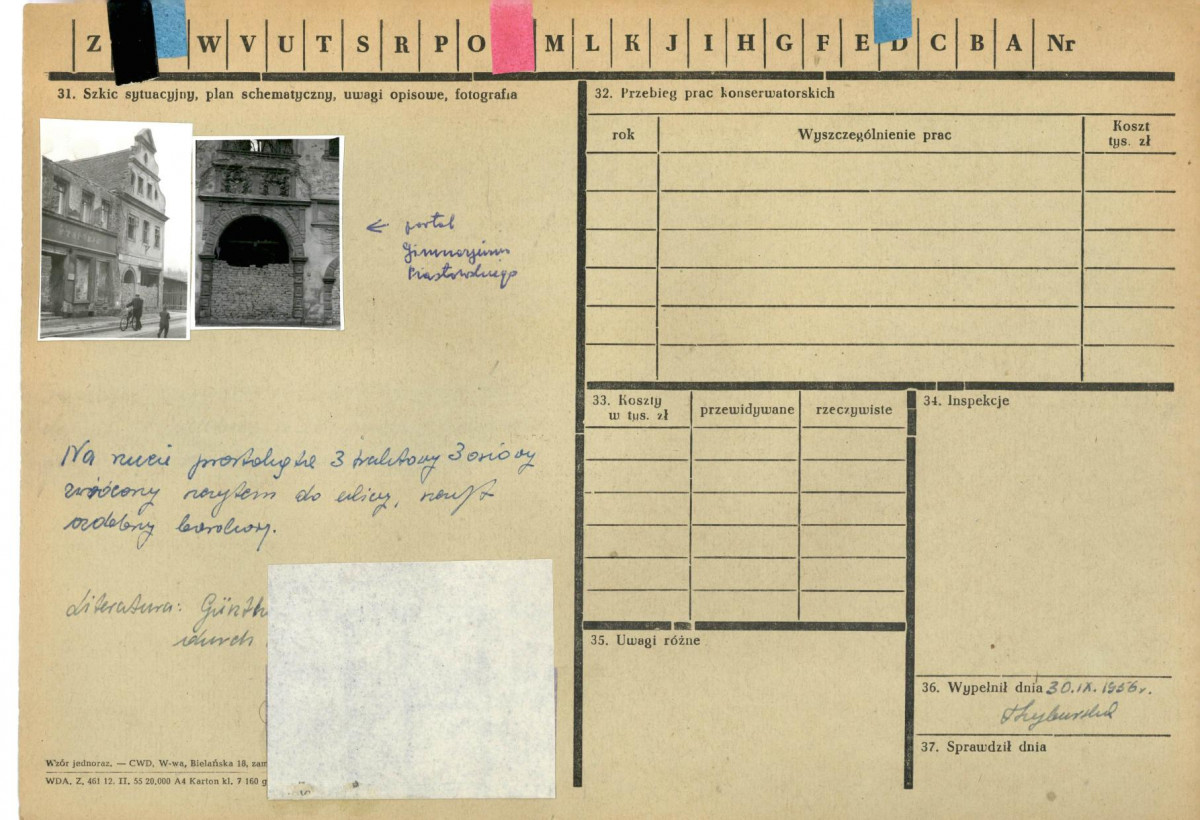 Z W V U T S R P O M L K J I H G F E D C B A Nr
31. Szkic sytuacyjny, plan schematyczny, uwagi opisowe, fotografia
← portal
Gimnazjum
Piastowskiego
Na rzucie prostokąta 3 traktowy 3 osiowy
zwrócony szczytem do ulicy, szczyt
ozdobny barokowy.
Literatura: Günth
durch
Wzór jednoraz. — CWD, W-wa, Bielańska 18, zam
WDA. Z. 461 12. II. 55 20.000 A4 Karton kl. 7 160 g
32. Przebieg prac konserwatorskich
rok Wyszczególnienie prac Koszt
tys. zł
33. Koszty
w tys. zł przewidywane rzeczywiste
34. Inspekcje
35. Uwagi różne
36. Wypełnił dnia 30.IX.1956r.
37. Sprawdził dnia